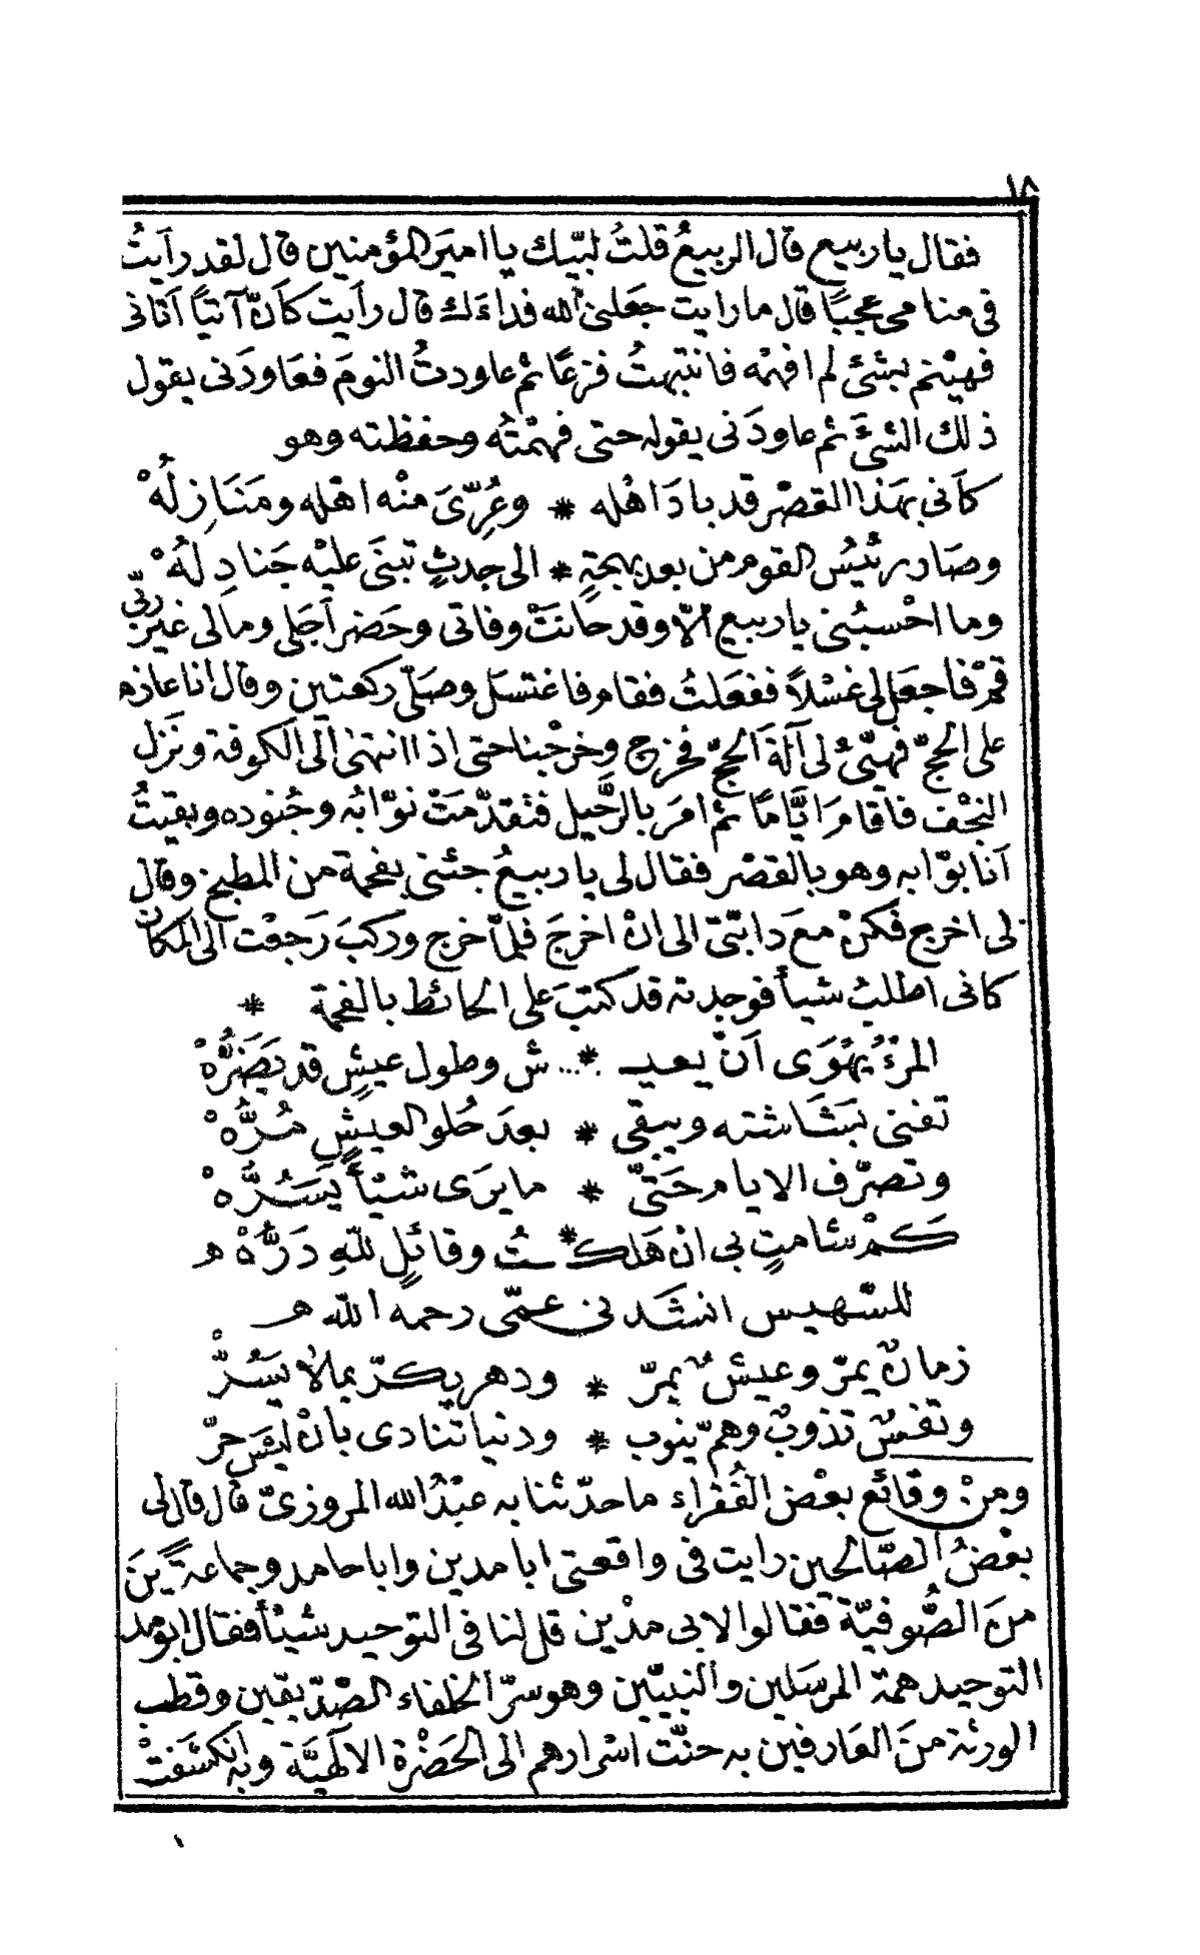 ١٨
فقال يا ربيع قال الربيعُ قلتُ لبّيك يا اميرَ المؤمنين قال لقد رأيتُ
فى منامى عجبًا قال ما رايت جعلنى الله فداءك قال رأيت كأنّ آتيًا أتانى
فهيْنم بشئ لم افهمْه فانتبهتُ فزعًا ثم عاودتُ النومَ فعاودَنى يقول
ذلك الشئَ ثم عاودَنى يقوله حتى فهمْتُه وحفظته وهو
كأنى بهذا القصْر قد بادَ اهْله * وعُرِّىَ منْه اهله ومَنَازِلُهْ
وصَار رئيسُ القوم من بعد بهجةٍ * الى جدثٍ تبنَى عليْه جَنادِلُهْ
وما احْسبُنى يا ربيع الاّ وقد حانتْ وفاتى وحَضر أجَلى ومالى غيْر ربّى
قمْ فاجعَل لى غسْلاً ففعَلتُ فقام فاغتسَل وصَلّى ركعتين وقال انا عازم
على الحجّ فهيّئ لى آلةَ الحجّ فخرج وخرجْنا حتى اذا انتهىٰ الى الكوفة ونَزل
النجْف فاقامَ ايَّامًا ثم امَر بالرَّحيل فتقدّمَتْ نوّابُه وجُنوده وبقيتُ
أنا بوّابه وهو بالقصْر فقال لى يا ربيعُ جئنى بفحْمة من المطبخ وقال
لى اخرج فكنْ معَ دابّتى الى انْ اخرجَ فلمّا خرج وركبَ رَجعْت الى المكان
كانى اطلبُ شيأً فوجدته قد كتبَ على الحائط بالفحمة *
المرْءُ يهْوَى أنّ يعيـ * ـش وطول عيشٍ قد يَضَرُّهْ
تفنى بَشَاشته ويبقى * بعدَ حُلو العيشِ مُرُّهْ
وتصرّف الايام حَتىّ * ما يرَى شيْأً يَسَُرُّهْ
كَمْ شامتٍ بى ان هَلكـ * ـتُ وقائلٍ للهِ دَرُّهْ ه
للسّهيس انشَدنى عمّى رحمه الله هـ
زمانٌ يمرّ وعيشٌ يمرّ * ودهر يكرّ بمالا يَسُرّْ
ونفسٌ تذوبٌ وهمّ ينوب * ودنيا تنادى بأنْ ليْسَ حرّ
ومنْ وقائع بعْض الفُقراء ما حدّثنا به عبْدُ الله المروزىّ قال قال لى
بعْضُ الصّالحين رايت فى واقعتى ابا مدين وابا حامد وجماعةً
منَ الصُّوفيّة فقالوا لابى مدْين قل لنا فى التوحيد شيْأً فقال ابو مد
التوحيد همة المرسَلين والنبيّين وهو سرّ الخلفاء الصّدّيقين وقطب
الورثة منَ العارفين به حنّت اسْرارهم الى الحَضْرة الالٓهيَّة وبه انكشَفتْ